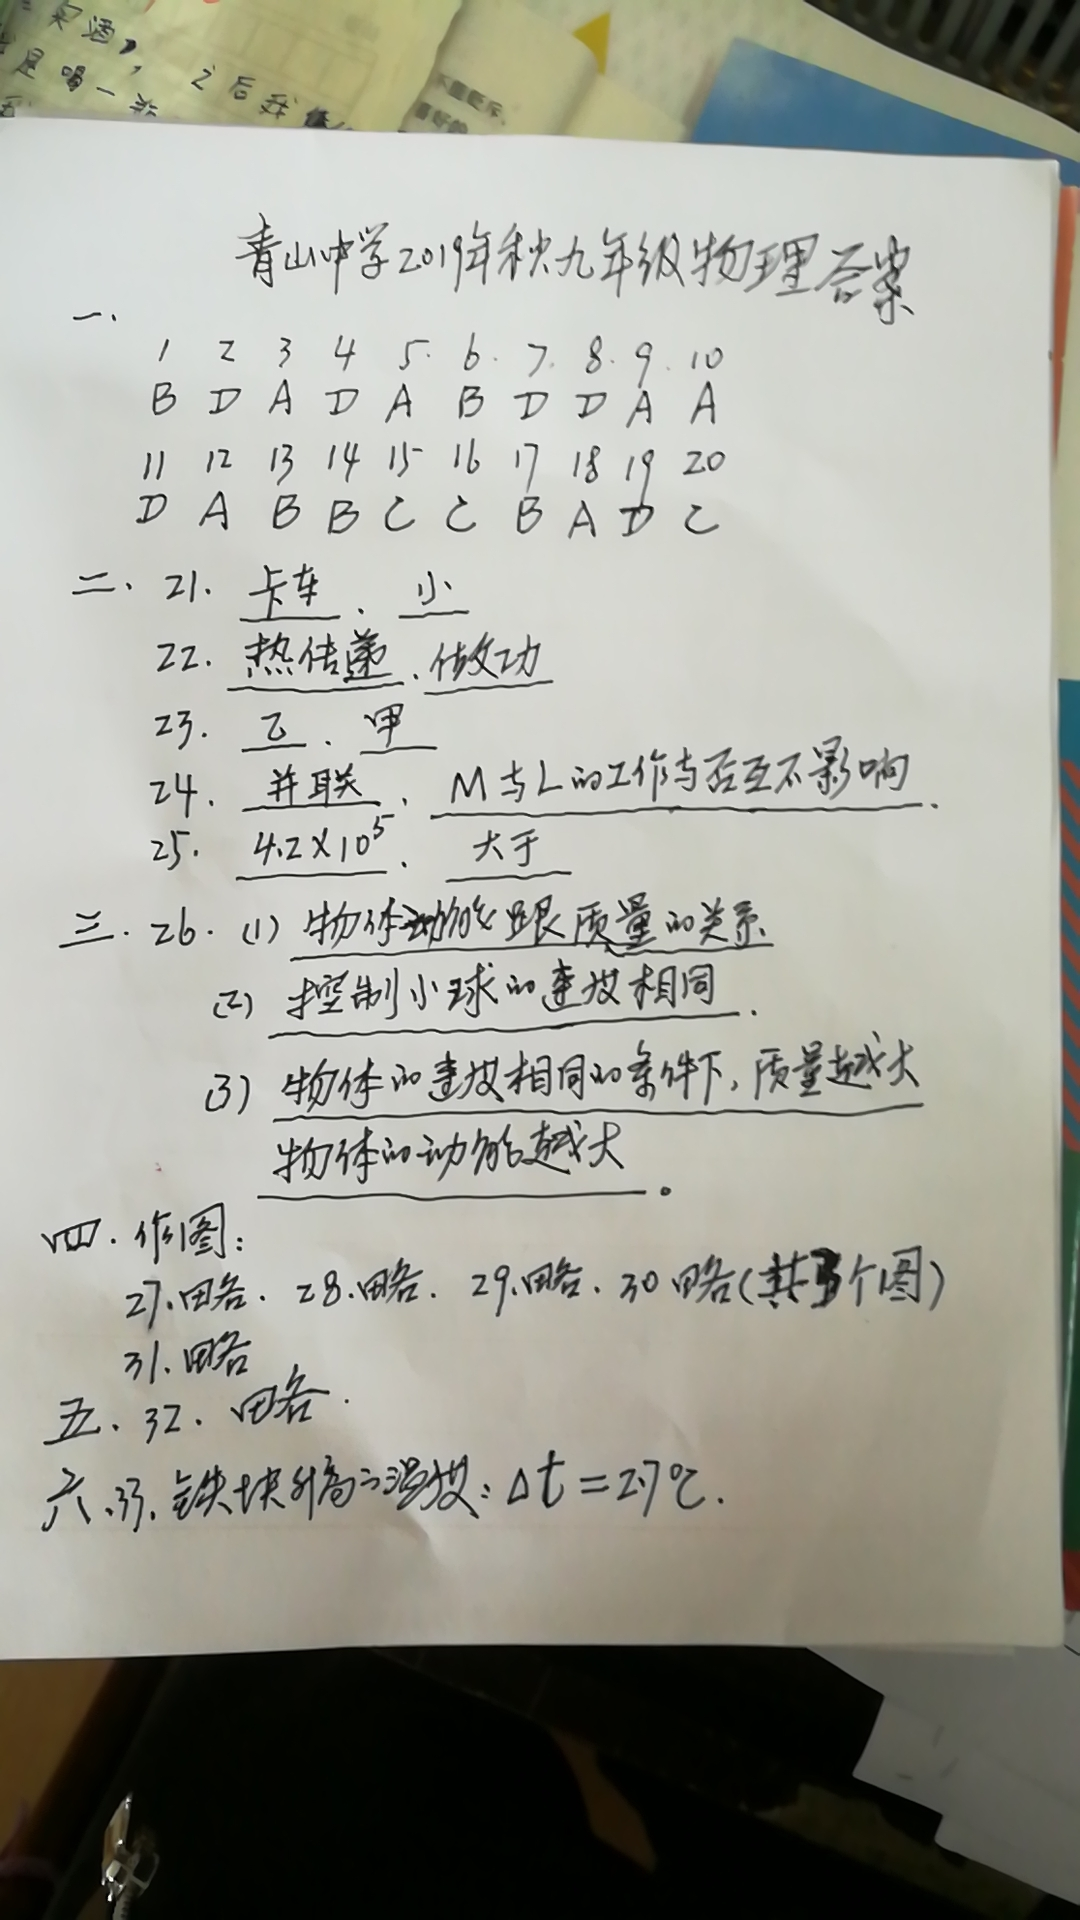 和酒,
是喝一杯
之后我
不重
青山中学2019年秋九年级物理答案
一.
1 2 3 4 5. 6. 7. 8. 9. 10
B D A D A B D D A A
11 12 13 14 15 16 17 18 19 20
D A B B C C B A D C
二. 21. 卡车 、 小
22. 热传递 、做功
23. 乙 、 甲
24. 并联 、 M与L的工作与否互不影响 .
25. 4.2×10⁵ 、 大于
三. 26. (1) 物体动能跟质量的关系
(2) 控制小球的速度相同 .
(3) 物体的速度相同的条件下,质量越大
物体的动能越大 。
四. 作图:
27.略. 28.略. 29.略. 30 略(共3个图)
31.略
五. 32. 略.
六.33. 铁块升高的温度: Δt=2.7℃.